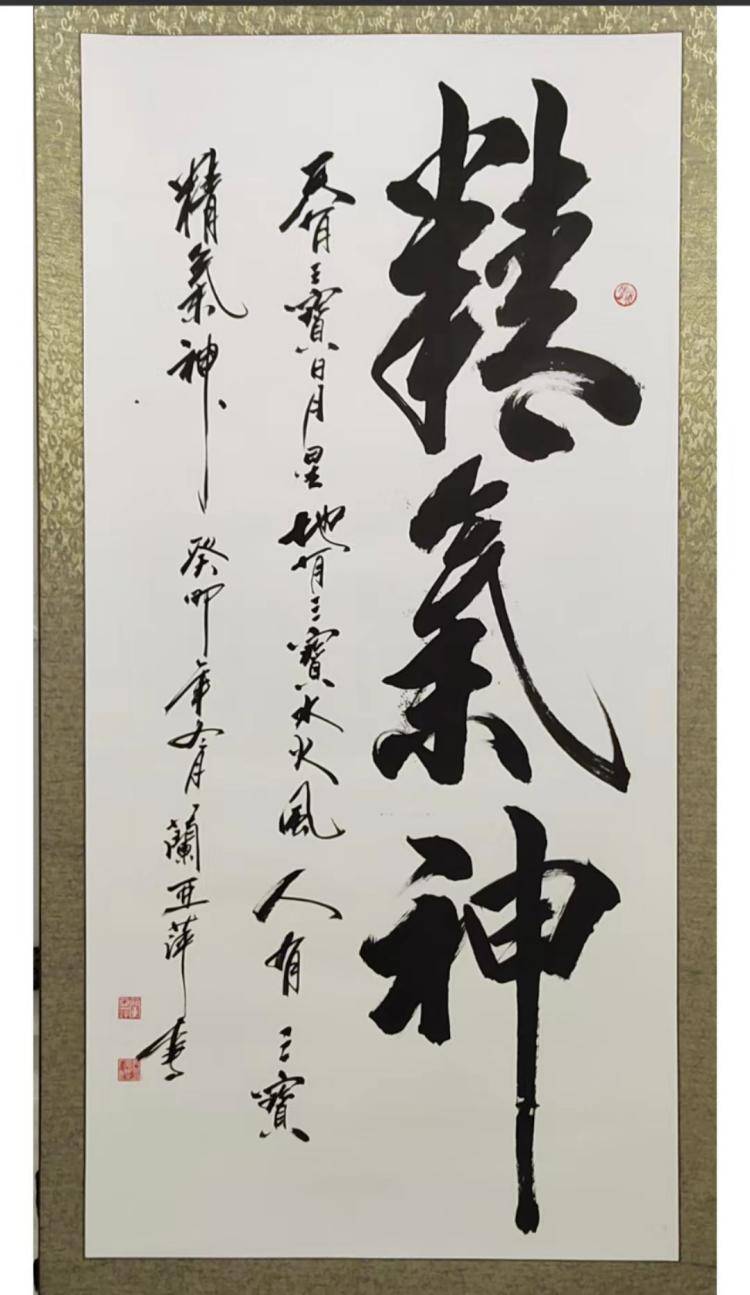 精氣神
天有三寶日月星地有三寶水火風人有三寶
精氣神癸卯年冬月蘭亚萍書